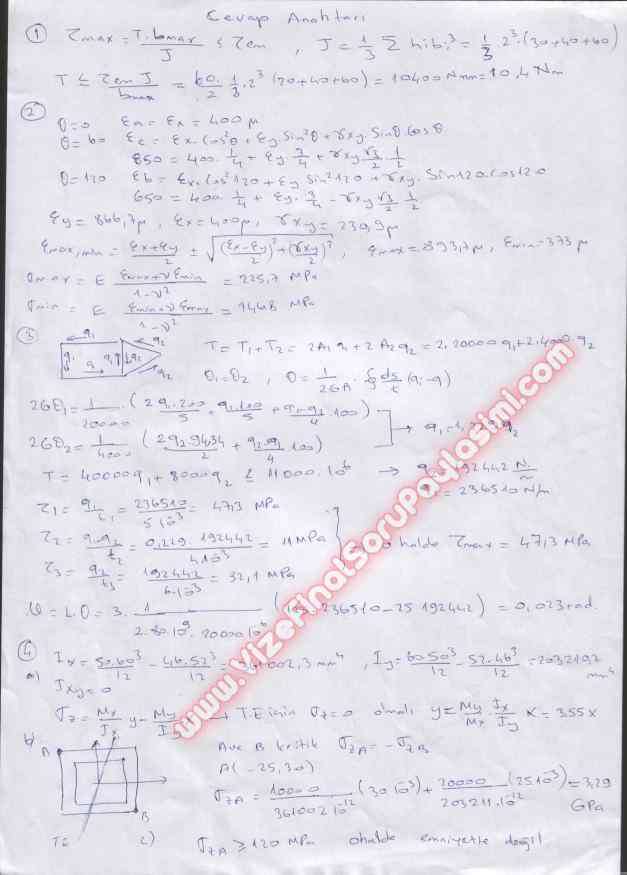 Cevap Anahtarı
① τmax = T.bmax / J ≤ τem , J = 1/3 Σ hibi³ = 1/3 2³.(30+40+60)
T ≤ τem J / bmax = 60/2 . 1/3 . 2³ (30+40+60) = 10400 Nmm = 10,4 Nm
② θ=0 εa = εx = 400 μ
θ=60 εc = εx.Cos²θ + εy Sin²θ + γxy.Sinθ Cosθ
850 = 400.1/4 + εy.3/4 + γxy √3/2 . 1/2
θ=120 εb = εx.Cos²120 + εy Sin²120 + γxy. Sin120.Cos120
650 = 400.1/4 + εy.3/4 - γxy √3/2 1/2
εy = 866,7μ , εx = 400μ , γxy = 230,9μ
εmax,min = εx+εy / 2 ± √((εx-εy / 2)² + (γxy / 2)²) , εmax = 893,7μ , εmin = 373 μ
σmax = E εmax+ν εmin / 1-ν² = 225,7 MPa
σmin = E εmin+ν εmax / 1-ν² = MPa
③ T = T1 + T2 = 2A1 q1 + 2 A2 q2 = 2.20000 q1 + 2.4000.q2
θ1=θ2 , θ = 1/2GA . ∮ ds/t (qi - q)
2Gθ1 = 1/20000 . (2 q1.200 / 5 + q1.100 / 5 + q1-q2 / 4 100)
2Gθ2 = 1/4000 (2q2.9434 / 2 + q2-q1 / 4 100)
T = 40000 q1 + 8000 q2 = 11000.10⁶ → q2 = 192442 N/m
q1 = 236510 N/m
τ1 = q1/t1 = 236510 / 5 10⁻³ = 47,3 MPa
τ2 = q1-q2 / t2 = 0,229. 192442 / 4 10⁻³ = 11 MPa o halde τmax = 47,3 MPa
τ3 = q2/t3 = 192442 / 6.10⁻³ = 32,1 MPa
= L θ = 3. 1 / 2.80 10⁹. 20000 10⁻⁶ ( 236510 - 25 192442) = 0,023 rad.
④ a) Ix = 50.60³ / 12 - 46.52³ / 12 = 361002,3 mm⁴ , Iy = 60.50³ / 12 - 52.46³ / 12 = 203210,2 mm⁴
Ixy = 0
σz = Mx/Ix y - My/Iy x → T.E için σz=0 olmalı y = My/Mx . Ix/Iy x = 3.55 x
b) A ve B kritik σzA = -σzB
A(-25,30)
σzA = 10000 / 361002 10⁻¹² (30 10⁻³) + 20000 / 203211.10⁻¹² (25 10⁻³) = 3,29 GPa
A
B
TE
c) σzA ≥ 120 MPa o halde emniyette değil
www.VizeFinalSoruPaylasimi.com